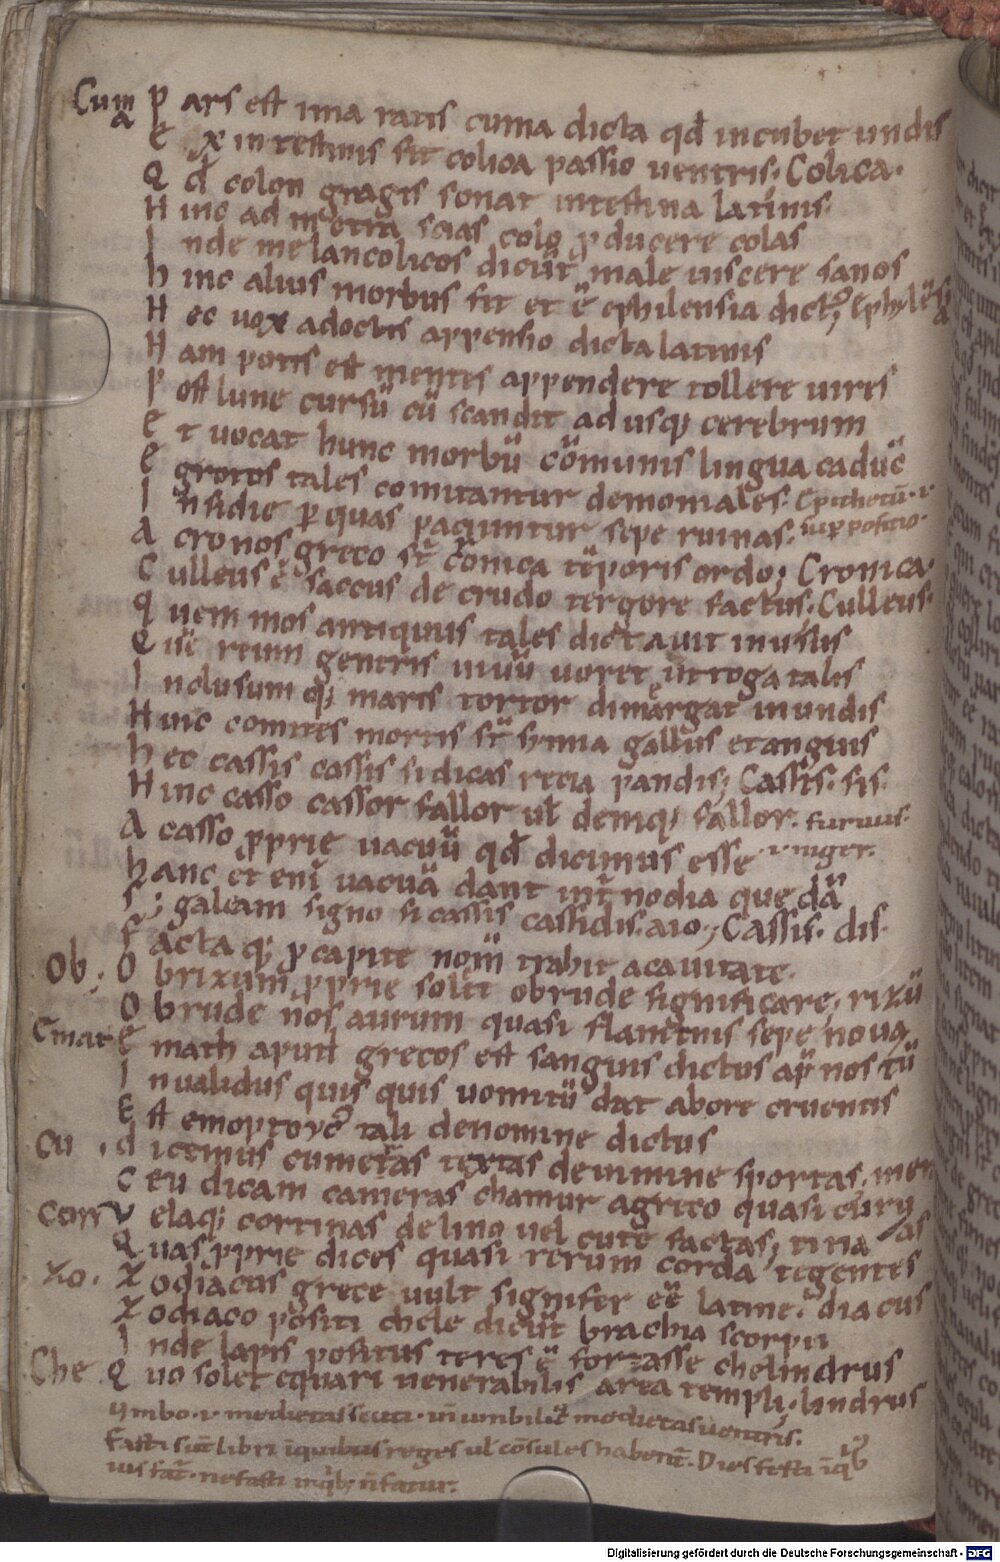 Cuma Pars est ima ratis cuma dicta qđ incubet undis
Ex intestinis fit colica passio uentris. Colica.
Qđ colon gragis sonat intestina latinis
Hinc ad metra scias colo ꝓducere colas
Inde melancolicos dicūt male uiscere sanos
hinc alius morbus fit et ē ephilensia dict᷒; Ephylēsia
Hec uox a doctis appensio dicta latinis
Nam potis est mentes appendere tollere uires
Post lune cursū cū scandit ad usq; cerebrum
et uocat hunc morbū cōmunis lingua cadūc
egrotos tales comitantur demoniales. Epithetū .i.
Insidie ꝑ quas paciuntur sepe ruinas. suꝑpositio.
A cronos greco st̄ cronica tēporis ordo; Cronica.
Culleus ē saccus de crudo tergore factus. Culleus.
quem mos antiquus tales dictauit in usus
Qui reum gentis uiuū uoret ut toga talis
Inclusum q; maris tortor dimergat in undis
Huic comites mortis st̄ symia gallus et anguis
hec cassis cassis si dicas recia pandis; Cassis. sis.
Hinc casso cassor fallor ul̄ deniq; fallor. furuus.
A casso ꝓprie uacuū qđ dicimus esse .i. niger.
hanc et enī uacuā dant int̄nodia quedā
S; galeam signo si cassis cassidis. aio; Cassis. dis.
facta q; ꝓ capite nom̄ trahit a cauitate.
Ob. Obrixum ꝓprie solet obrude significare, rixū
Obrude nos aurum quasi flammis sepe nouaꝫ
Emat emath aput grecos est sanguis dictus ap̄ nos tū
Inualidus quis quis uomitū dat ab ore cruentis
Est emoptoyc᷒ tali denomine dictus
Cu. dicimus cumeras textas de uimine sportas, men
Ceu dicam cameras chamur a greco quasi curu
Corr Velaq; cortinas de lino uel cute factas; tina as
Quas ꝓprie dices quasi rerum corda tegentes
Zo. Zodiacus grece uult signifer eē latine. diacus
Zodiaco positi chele dicūt brachia scorpii
Inde lapis positus teres ē fortasse chelindrus
Che Quo solet equari uenerabilis area templi. lindrus
ymbo .i. medietas scuti. uī umbilic᷒ medietas uentris.
fasti sūt libri īquibus reges ul̄ cōsules habent᷑. Dies festi īqb᷒
ius fat᷑. nefasti inqb; n̄ fatur.
Digitalisierung gefördert durch die Deutsche Forschungsgemeinschaft - DFG